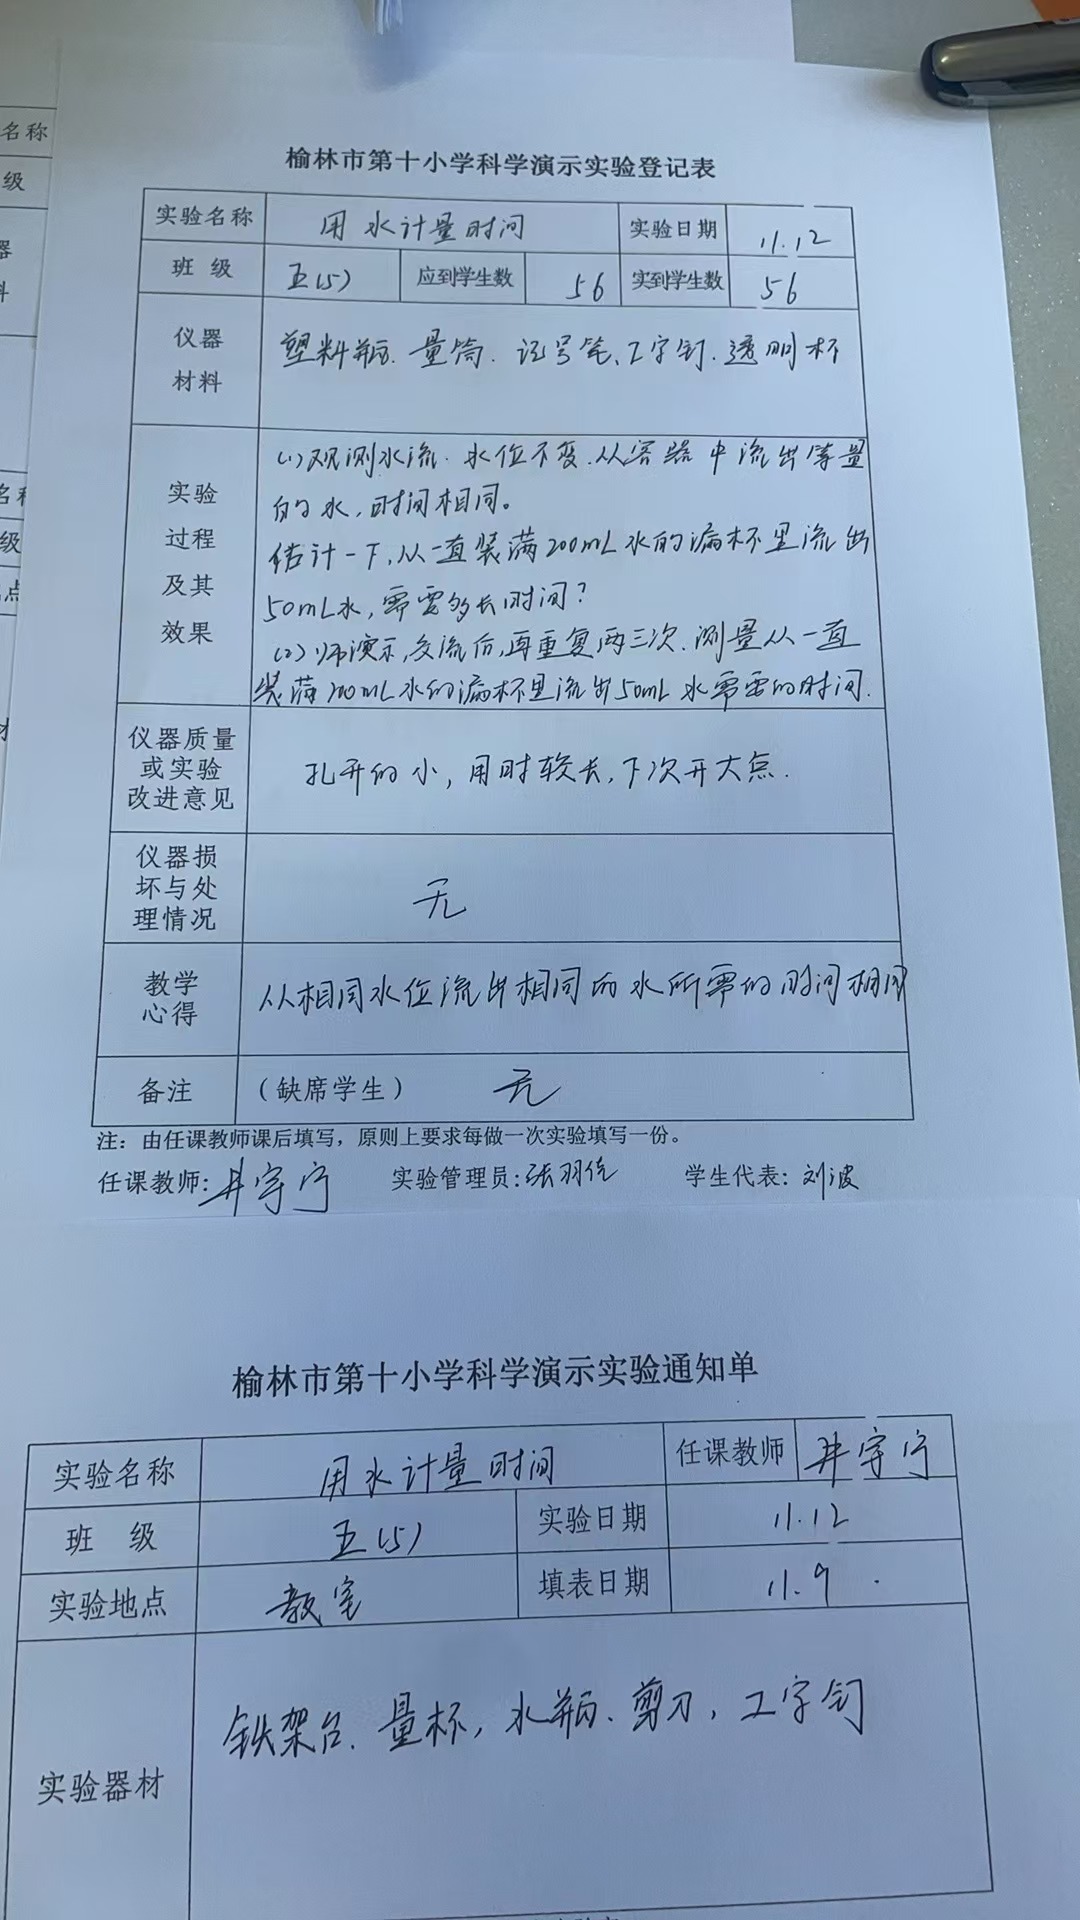 榆林市第十小学科学演示实验登记表
实验名称 用水计量时间 实验日期 11.12
班 级 五(5) 应到学生数 56 实到学生数 56
仪器
材料
塑料瓶、量筒、记号笔、工字钉、透明杯
实验
过程
及其
效果
(1)观测水流.水位不变.从容器中流出等量
的水,时间相同。
估计一下,从一直装满200mL水的漏杯里流出
50mL水,需要多长时间?
(2)师演示,交流后,再重复两三次.测量从一直
装满200mL水的漏杯里流出50mL水需要的时间.
仪器质量
或实验
改进意见
孔开的小,用时较长,下次开大点.
仪器损
坏与处
理情况
无
教学
心得
从相同水位流出相同的水所需的时间相同
备注 (缺席学生) 无
注:由任课教师课后填写,原则上要求每做一次实验填写一份。
任课教师:井宇宁 实验管理员:张羽佳 学生代表:刘波
榆林市第十小学科学演示实验通知单
实验名称 用水计量时间 任课教师 井宇宁
班 级 五(5) 实验日期 11.12
实验地点 教室 填表日期 11.9
实验器材
铁架台、量杯,水瓶、剪刀,工字钉
名称
级